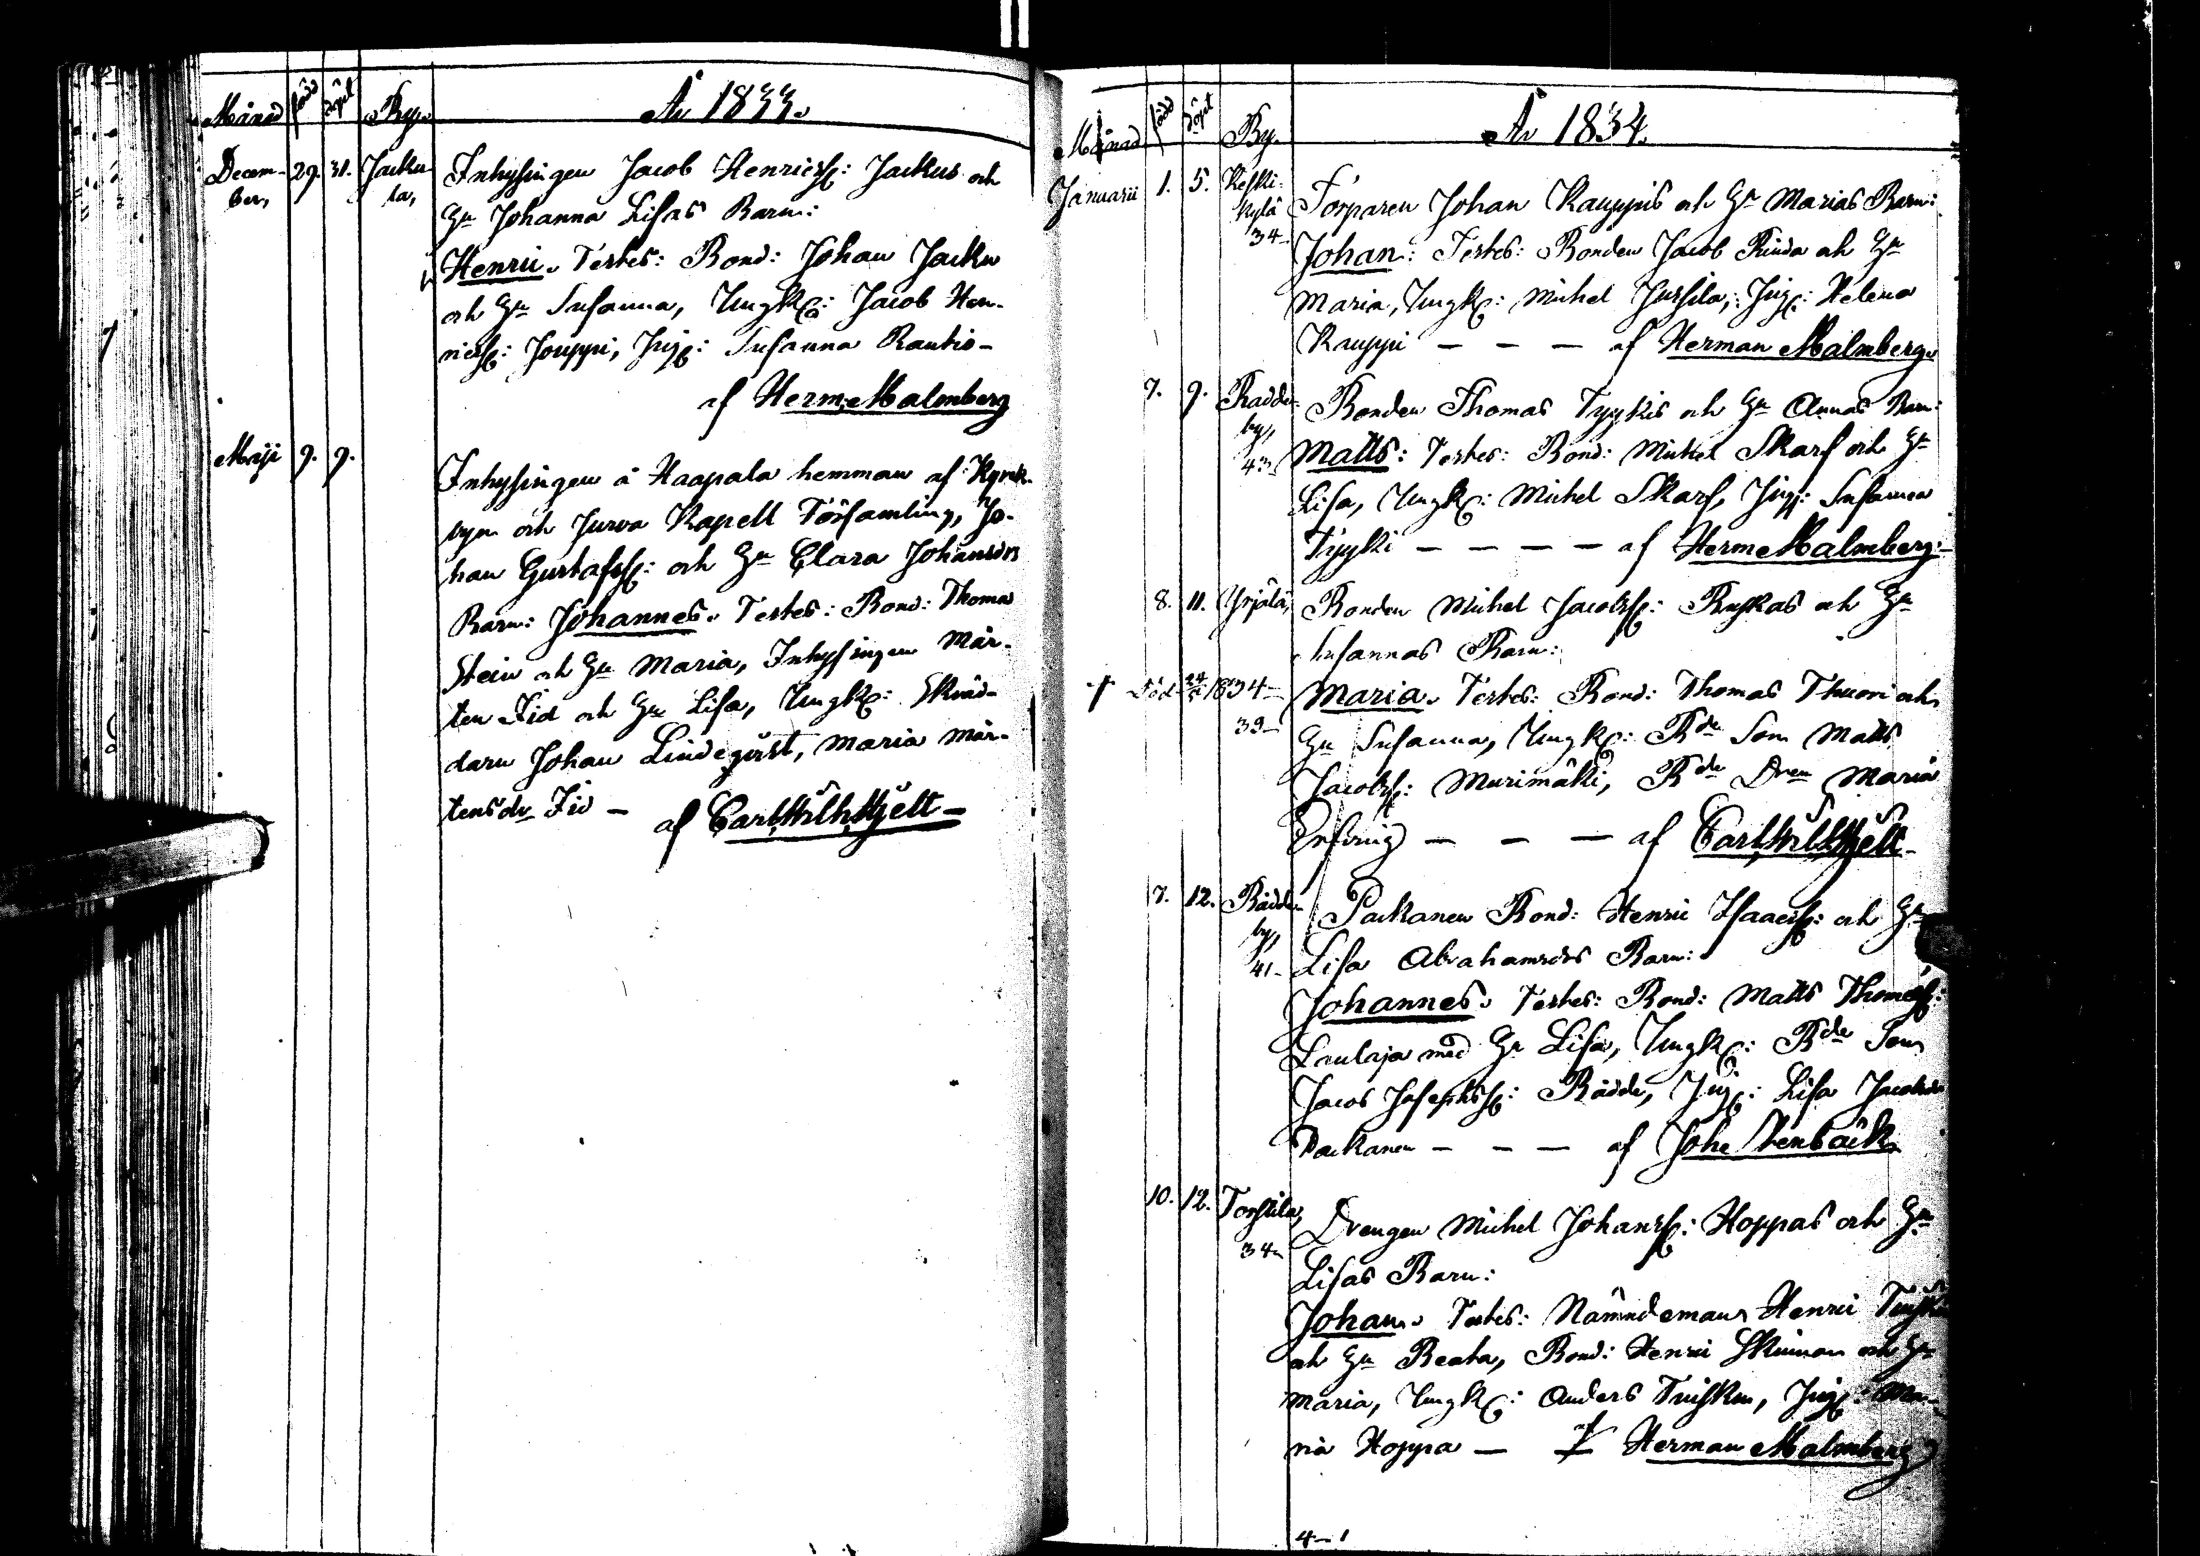 Månad född döpt By. År 1833.
Decem- 29. 31. Jacku- Inhysingen Jacob Henricss: Jackus och
ber, la, Hu Johanna Lisas Barn:
Henric. Testes: Bond: Johan Jacku
och Hu Susanna, Ungk: Jacob Hen-
ricss: Jouppi, Pig: Susanna Rautio-
af Herm: Malmberg
Maji 9. 9. Inhysingen å Haapala hemman af Kyrk-
byn och Jurva Kapell Församling, Jo-
han Gustafss: och Hu Clara Johansdrs
Barn: Johannes. Testes: Bond: Thomas
Stein och Hu Maria, Inhysingen Mår-
ten Fid och Hu Lisa, Ungk: Skräd-
daren Johan Lindeqvist, Maria Mår-
tensdr Fid – af Carl Wilh Hjelt –
Månad född döpt By. År 1834.
Januarii 1. 5. Keski- Torparen Johan Kauppis och Hu Marias Barn:
kylä
34- Johan: Testes: Bonden Jacob Rinda och Hu
Maria, Ungk: Michel Jussila, Pig: Helena
Kauppi – – – af Herman Malmberg.
7. 9. Rädde- Bonden Thomas Tyykis och Hu Annas Barn:
by,
43 Matts: Testes: Bond: Michel Skarf och Hu
Lisa, Ungk: Michel Skarf, Pig: Susanna
Tyyki – – – – af Herm Malmberg:-
8. 11. Yrjälä, Bonden Michel Jacobss: Ruskas och Hu
Susannas Barn:
† Död 24/5 1834- Maria. Testes: Bond: Thomas Thuori och
39- Hu Susanna, Ungk: Bde Son Matts
Jacobss: Murimäki, Bde Dren Maria
– – – af Carl Wilh Hjelt –
7. 12. Rädde- Packanen Bond: Henric Isaacss: och Hu
by,
41- Lisa Abrahamsdrs Barn:
Johannes. Testes: Bond: Matts Thomess:
Laulaja med Hu Lisa, Ungk: Bde Son
Jacob Josephss: Rädde, Pig: Lisa Jacobsdr
Packanen – – – af Johe Stenbäck
10. 12. Torstila, Drengen Michel Johanss: Hoppas och Hu
34- Lisas Barn:
Johan. Testes: Nämndeman Henric
och Hu Beata, Bond: Henric och Hu
Maria, Ungk: Anders Tuisku, Pig: Ma-
ria Hoppa – af Herman Malmberg
4-1